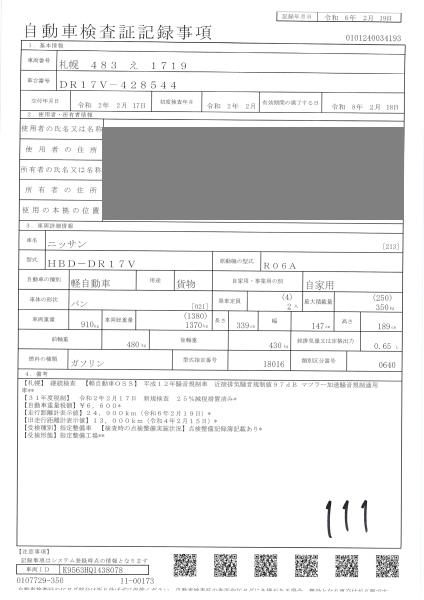 記録年月日 令和 6年 2月 19日
自動車検査証記録事項
0101240034193
1．基本情報
車両番号 札幌 483 え 1719
車台番号 DR17V-428544
交付年月日 令和 2年 2月17日 初度検査年月 令和 2年 2月 有効期間の満了する日 令和 8年 2月 18日
2．使用者・所有者情報
使用者の氏名又は名称
使用者の住所
所有者の氏名又は名称
所有者の住所
使用の本拠の位置
3．車両詳細情報
車名 ニッサン [213]
型式 HBD-DR17V 原動機の型式 R06A
自動車の種別 軽自動車 用途 貨物 自家用・事業用の別 自家用
車体の形状 バン [021] 乗車定員 (4) 2人 最大積載量 (250) 350kg
車両重量 910kg 車両総重量 (1380) 1370kg 長さ 339cm 幅 147cm 高さ 189cm
前軸重 480kg 後軸重 430kg 総排気量又は定格出力 0.65L
燃料の種類 ガソリン 型式指定番号 18016 類別区分番号 0640
4．備考
【札幌】 継続検査 【軽自動車OSS】 平成12年騒音規制車 近接排気騒音規制値97dB マフラー加速騒音規制適用
車**
【31年度税制】 令和2年2月17日 新規検査 25%減税措置済み*
【自動車重量税額】￥6,600*
【走行距離計表示値】24,000km（令和6年2月19日）*
【旧走行距離計表示値】13,000km（令和4年2月15日）*
【受検種別】指定整備車 【検査時の点検整備実施状況】点検整備記録簿記載あり*
【受検形態】指定整備工場**
111
【注意事項】
記録事項はシステム登録時点の情報となります
車両ID K9563HQ1438078
0107729-350 11-00173